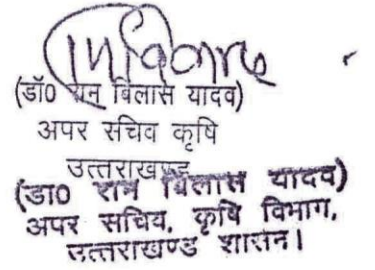 (डॉ0 राम बिलास यादव)
अपर सचिव कृषि
उत्तराखण्ड
(डा0 राम बिलास यादव)
अपर सचिव, कृषि विभाग,
उत्तराखण्ड शासन।